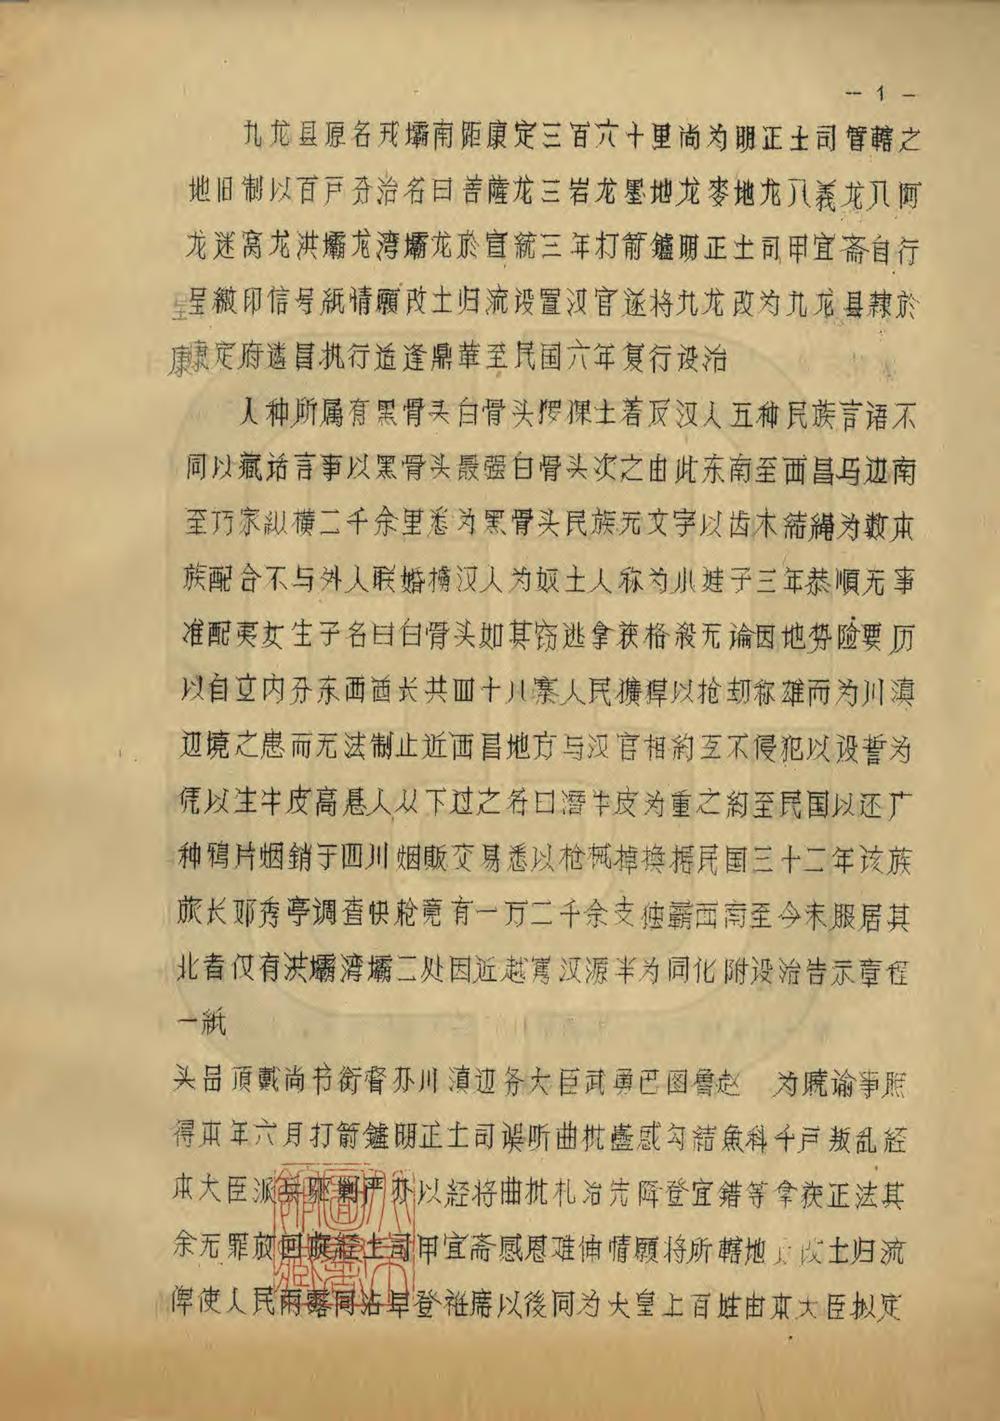 -- 1 -
九龙县原名戎壩南距康定三百六十里尚为明正土司管轄之
地旧制以百戸分治名曰菩薩龙三岩龙墨地龙麥地龙八義龙八阿
龙迷窝龙洪壩龙湾壩龙於宣統三年打箭鑪明正土司甲宜斋自行
呈繳印信号紙情願改土归流设置汉官遂将九龙改为九龙县隸於
康定府遴昌执行造逢鼎革至民国六年复行设治
人种所属有黑骨头白骨头猡猓土著及汉人五种民族言语不
同以藏话言事以黑骨头最强白骨头次之由此东南至西昌马边南
至巧家纵横二千余里悉为黑骨头民族无文字以齿木結繩为数本
族配合不与外人联婚擄汉人为奴土人称为小娃子三年恭順无事
准配夷女生子名曰白骨头如其窃逃拿获格殺无论因地势险要历
以自立内分东西酋长共四十八寨人民獷猂以抢刧称雄而为川滇
边境之患而无法制止近西昌地方与汉官相約互不侵犯以设誓为
凭以生牛皮高悬人从下过之名曰潛牛皮为重之約至民国以还广
种鴉片烟銷于四川烟販交易悉以枪械掉换据民国三十二年该族
族长邓秀亭调查快枪竟有一万二千余支独霸西南至今未服居其
北者仅有洪壩湾壩二处因近越寯汉源半为同化附设治告示章程
一紙
头品頂戴尚书衔督办川滇边务大臣武勇巴图魯赵　为晓谕事照
得本年六月打箭鑪明正土司误听曲批蠱惑勾結魚科千戸叛乱经
本大臣派兵驱剿严办以经将曲批札治先降登宜錯等拿获正法其
余无罪放回旋经土司甲宜斋感恩难伸情願将所轄地 改土归流
俾使人民雨露同沾早登袵席以後同为大皇上百姓由本大臣拟定